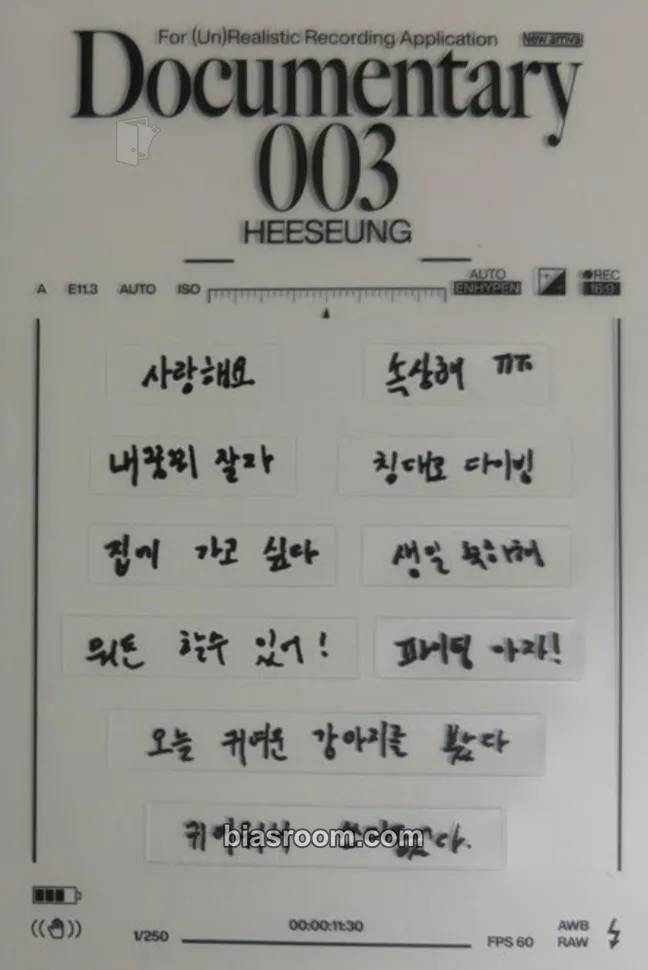 For (Un)Realistic Recording Application
New arrival
Documentary
003
HEESEUNG
A E11.3 AUTO ISO
AUTO
ENHYPEN
REC
16:9
사랑해요
속상해 ㅠㅠ
내꿈꿔 잘자
침대로 다이빙
집에 가고 싶다
생일 축하해
뭐든 할수 있어!
파이팅 아자!
오늘 귀여운 강아지를 봤다
biasroom.com
1/250
00:00:11:30
FPS 60
AWB
RAW